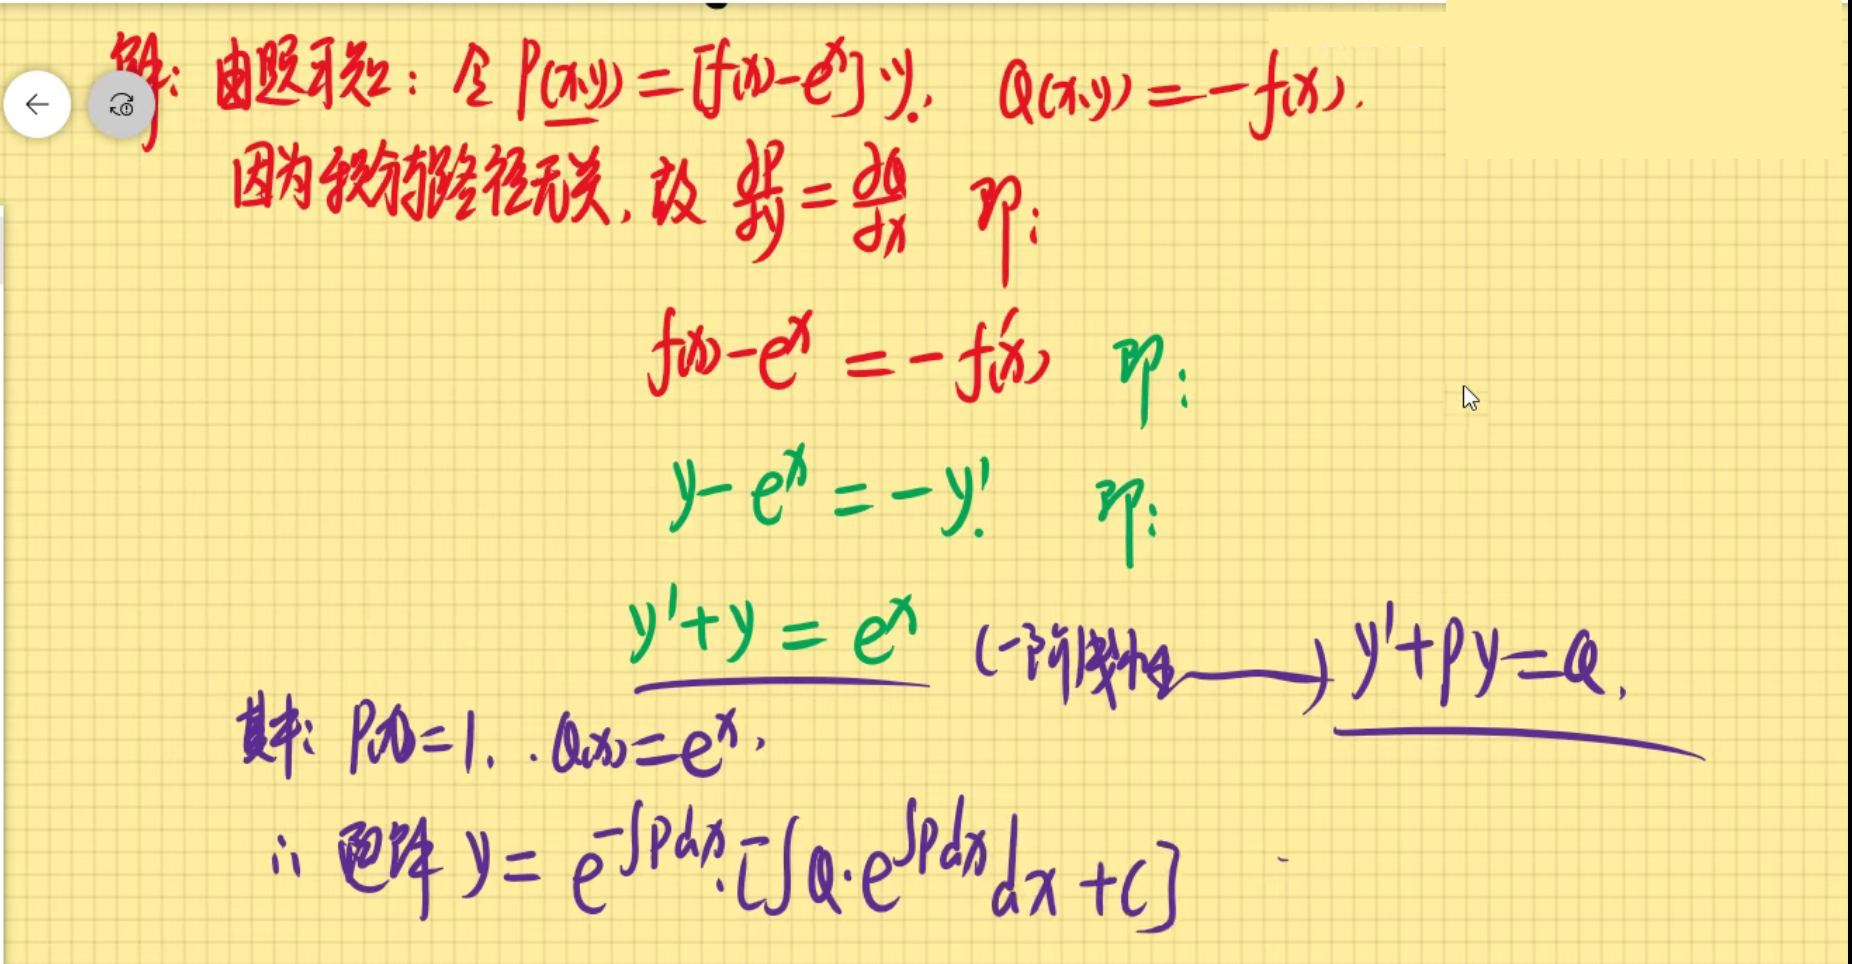 解: 由题可知: 令 P(x,y) = [f(x)-e^x]y. Q(x,y) = -f(x).
因为积分与路径无关, 故 ∂P/∂y = ∂Q/∂x 即:
f(x)-e^x = -f'(x) 即:
y-e^x = -y'. 即:
y'+y = e^x (一阶线性) y'+py=Q.
其中: P(x)=1. Q(x)=e^x.
∴ 通解 y = e^{-∫Pdx}·[∫Q·e^{∫Pdx}dx+C]